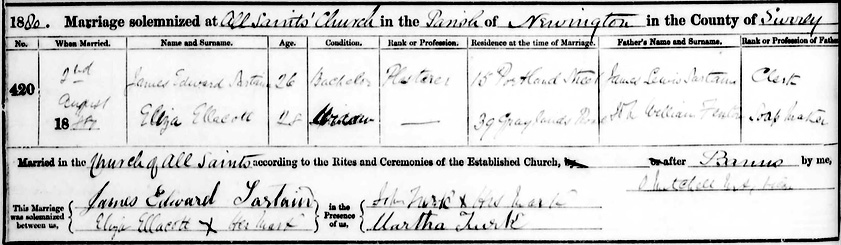 1880. Marriage solemnized at All Saints' Church in the Parish of Newington in the County of Surrey
No. When Married. Name and Surname. Age. Condition. Rank or Profession. Residence at the time of Marriage. Father's Name and Surname. Rank or Profession of Father
420 2nd August 18 James Edward Sartain 26 Bachelor Plasterer 15 Portland Street James Lewis Sartain Clerk
Eliza Ellacott 28 Widow — 39 William Soap Maker
Married in the Church of All Saints according to the Rites and Ceremonies of the Established Church, by or after Banns by me,
This Marriage was solemnized between us, James Edward Sartain in the Presence of us, John Turk x His Mark
Eliza Ellacott x Her Mark Martha Turk